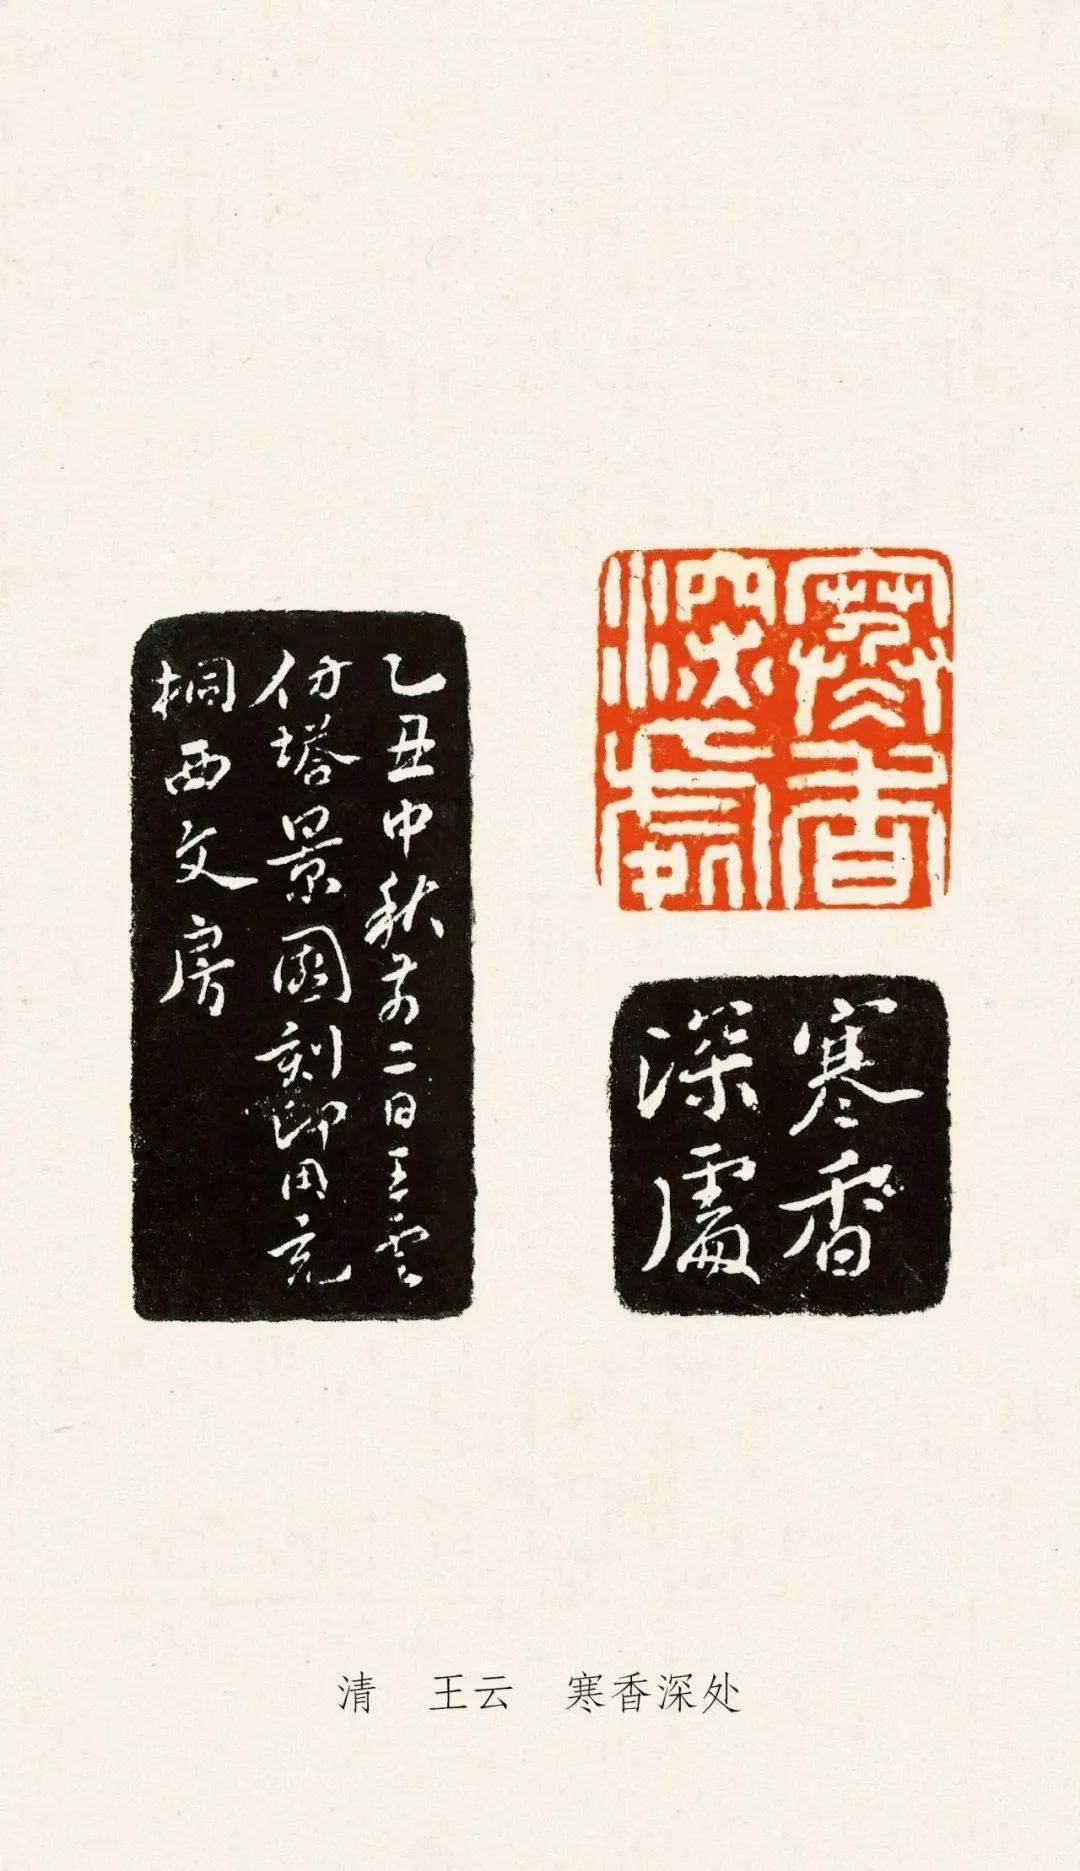 寒香
深處
寒香
深處
乙丑中秋前二日王雲
仿塔景園刻印用充
桐西文房
清 王云 寒香深处